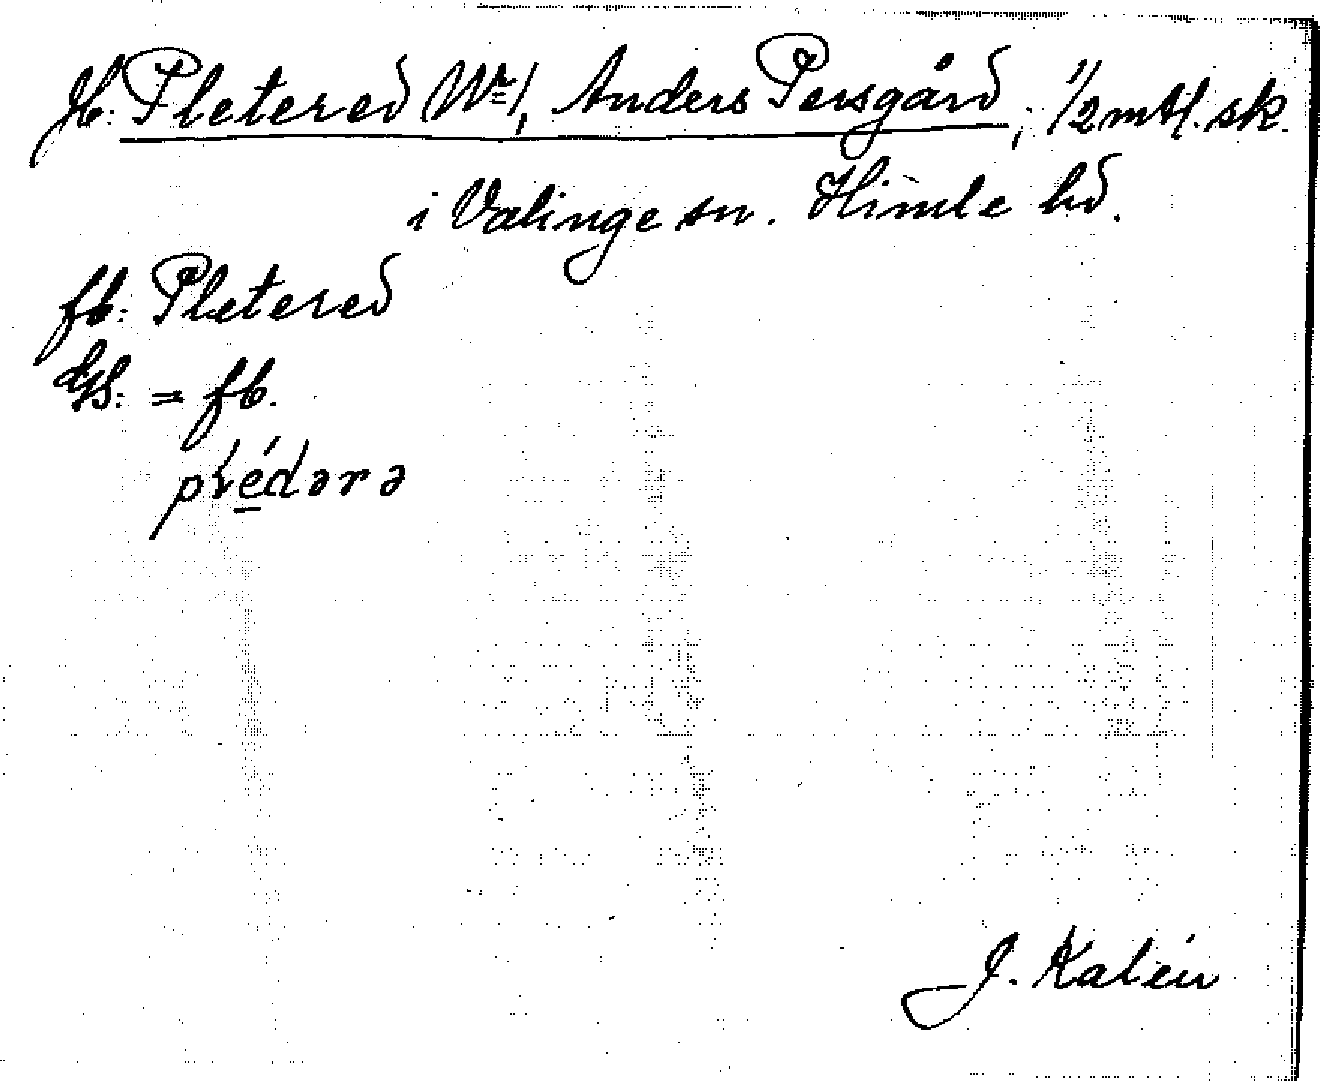 jb: Pletered Nr 1, Anders Persgård, 1/2 mtl. sk.
i Valinge sn. Himle hd.
fb: Pletered
GS: = fb.
pléd́ərə
J. Kalén